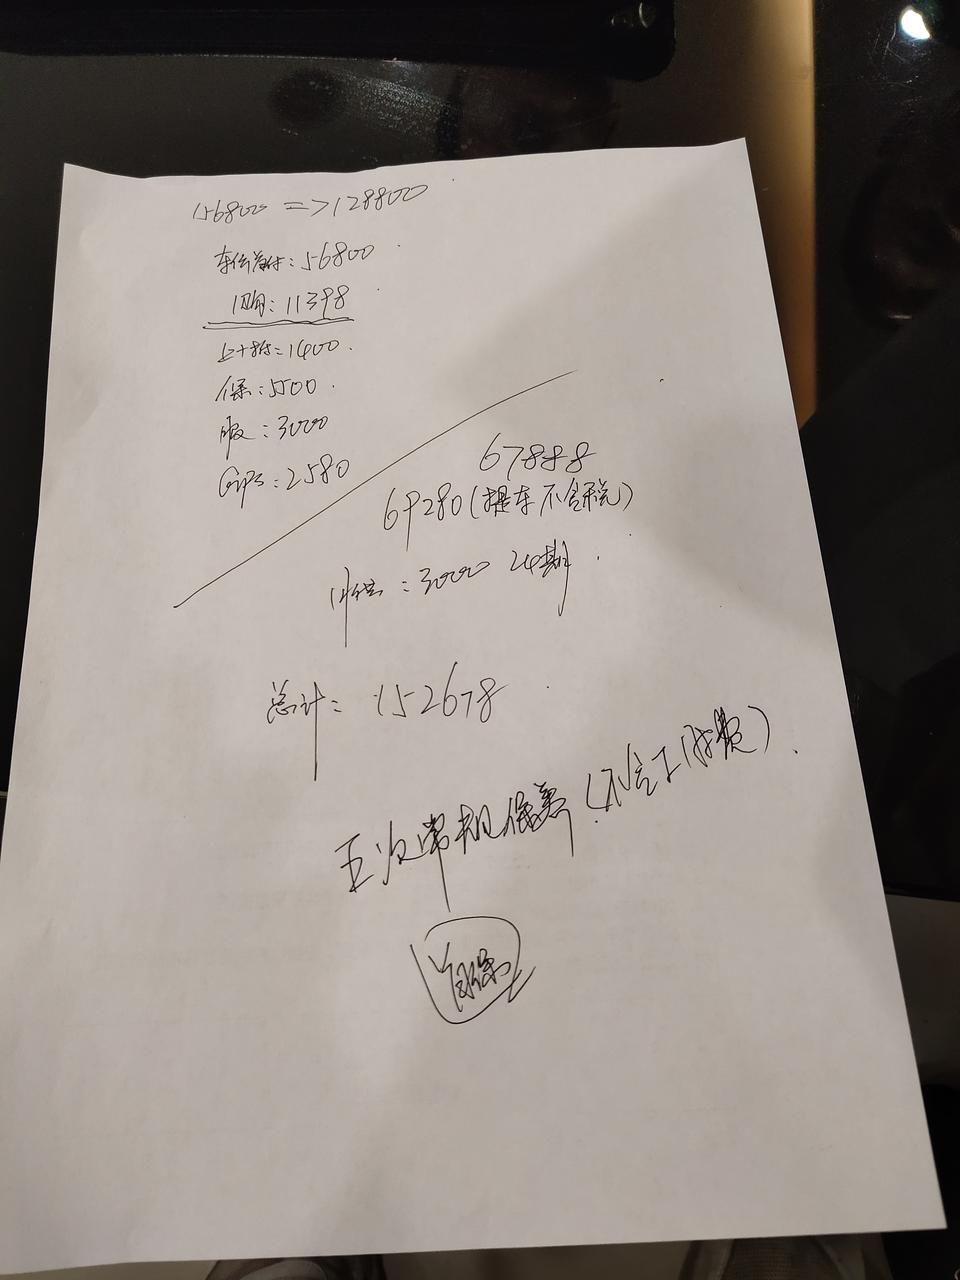 156800 => 128800
车价首付: 56800
11398
上牌: 1400
保: 5500
服: 3000
GPS: 2580
67888
69280(提车不含税)
月供: 3000 24期
总计: 152678
五次常规保养(不含工时费)
首保